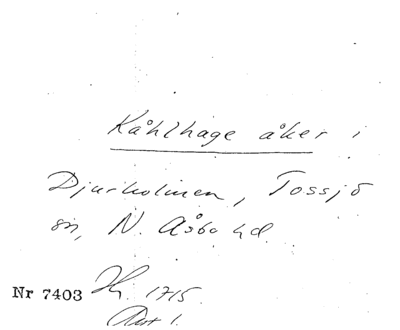 Kåhlhage åker i
Djurholmen, Tossjö
sn, N. Åsbo hd.
Nr 7403 Hh. 1715.
Akt 1.